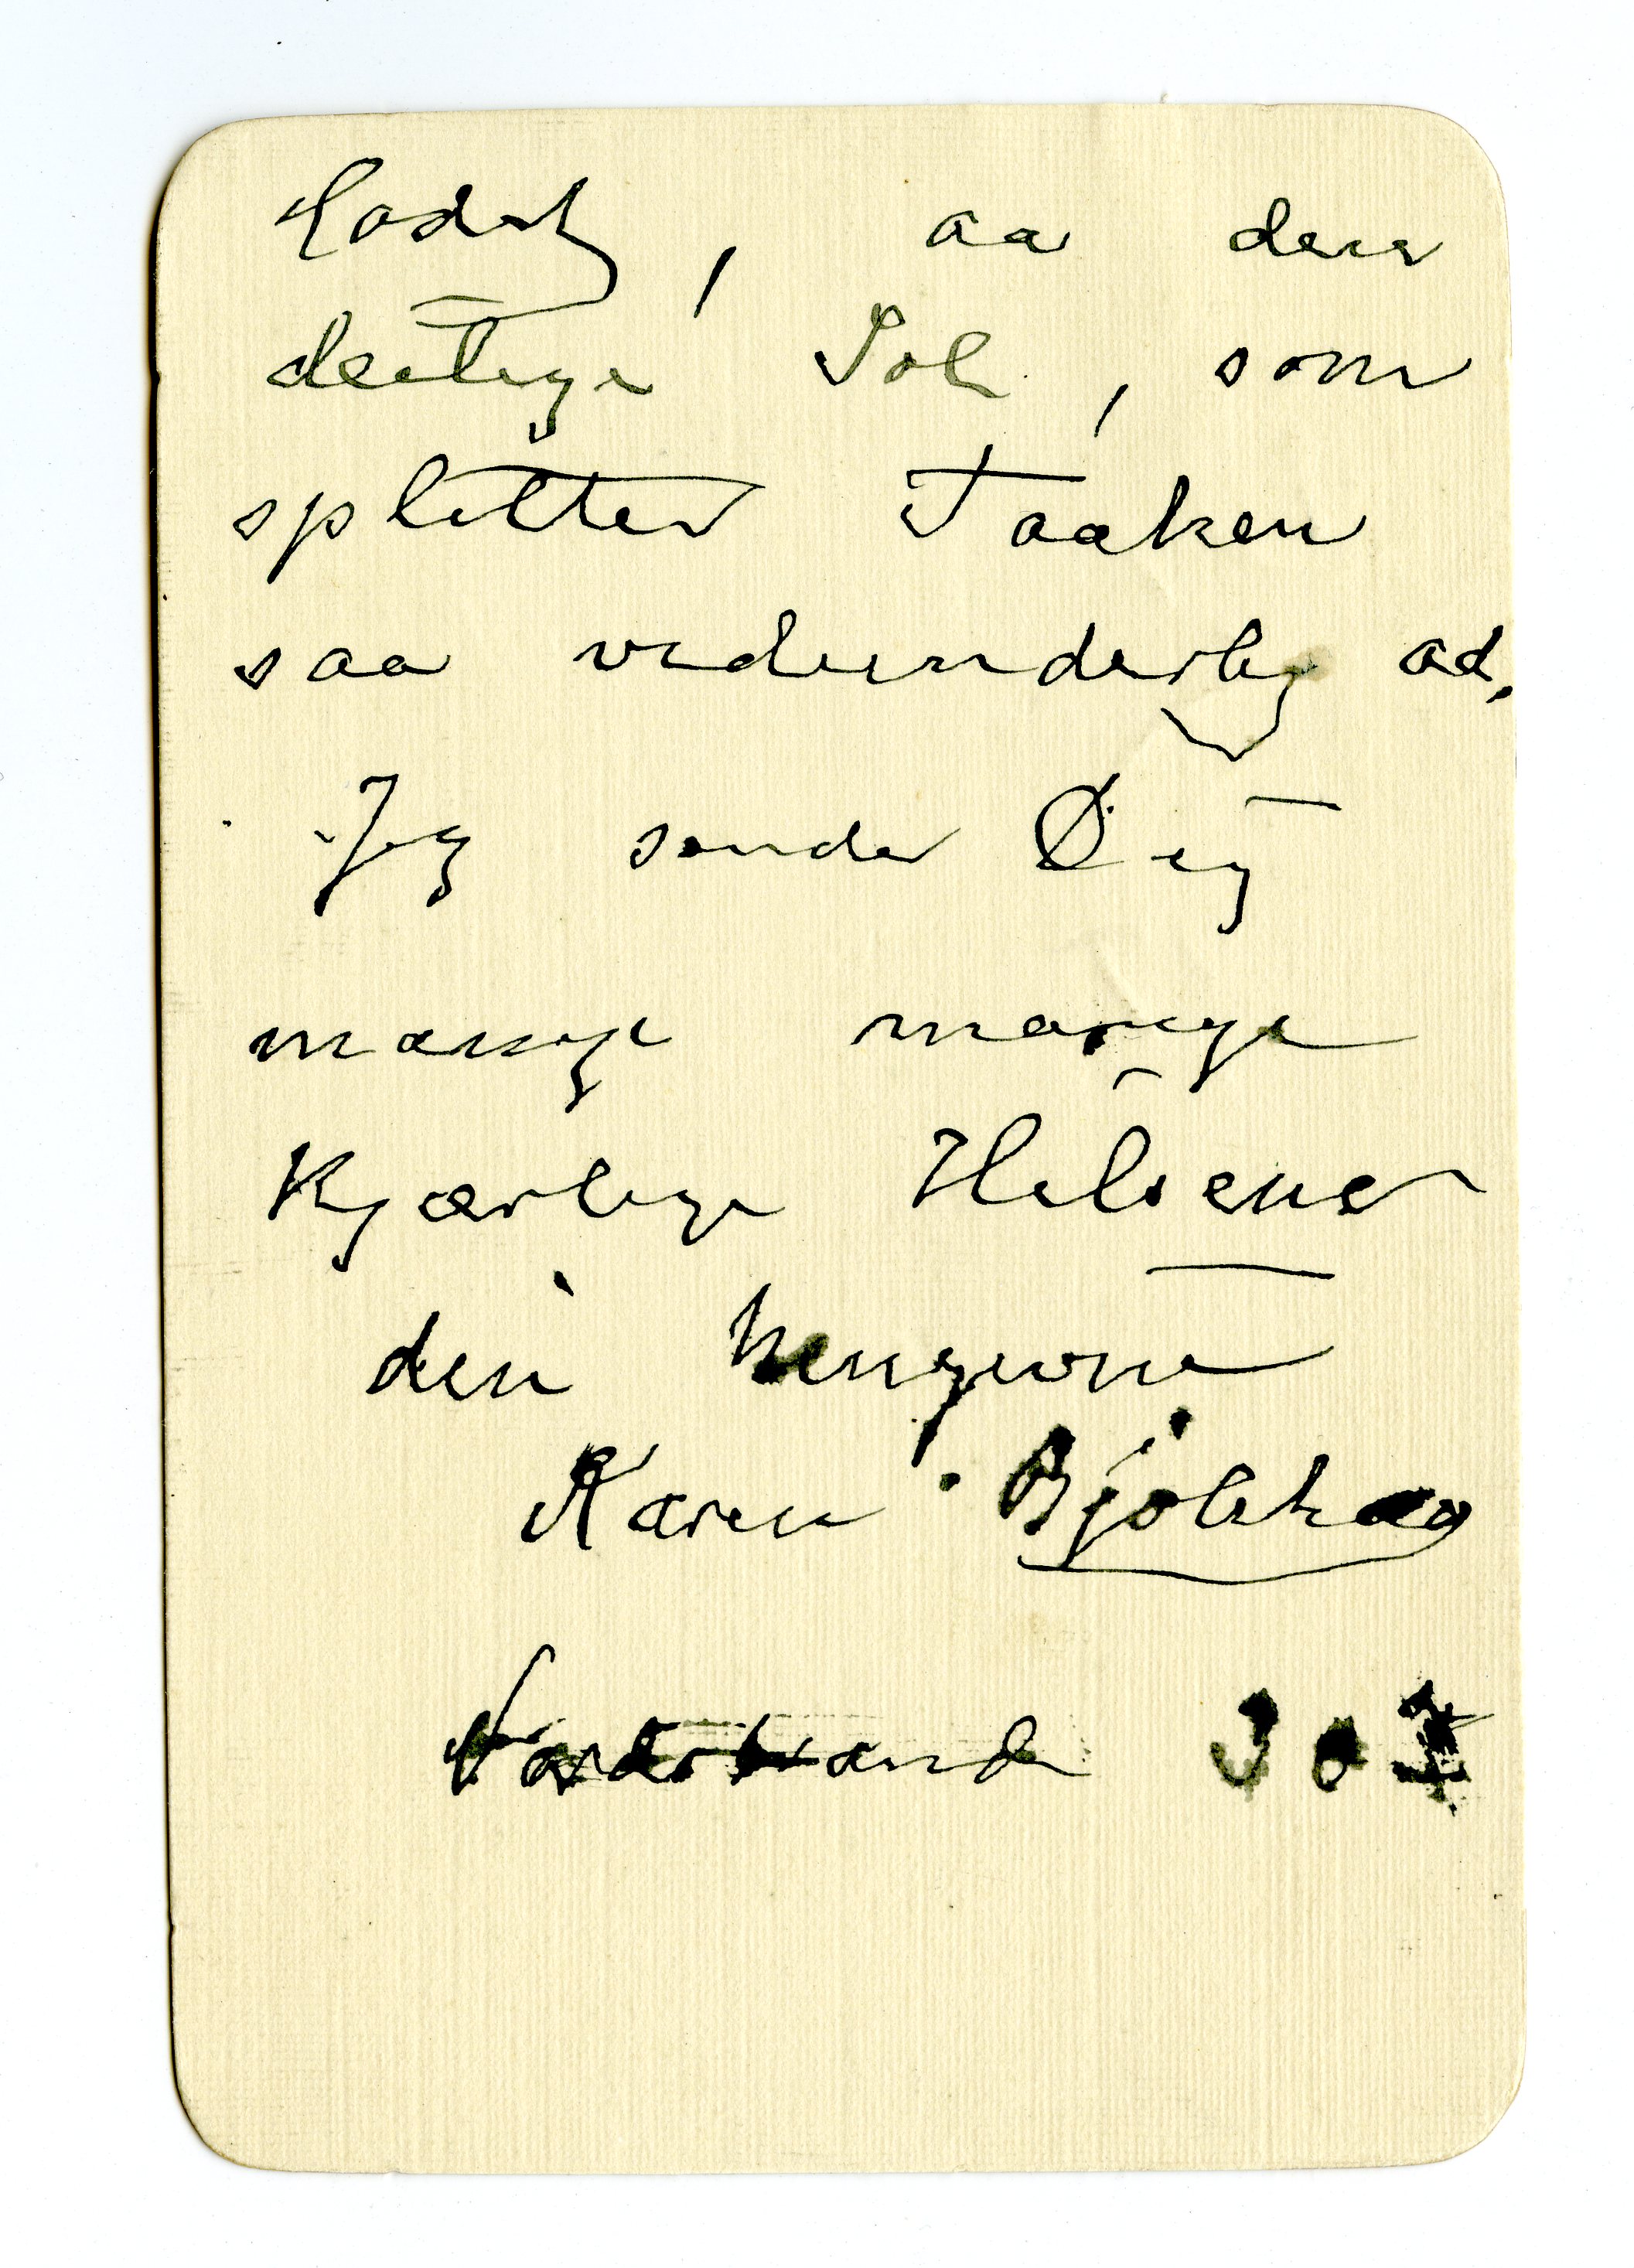 Godt, aa den
deilige Sol, som
splitter Taaken
saa vidunderlig ad.
Jeg sender Dig
mange mange
Kjærlige Hilsener
din hengivne
Karen Bjölstad
Nordstrand